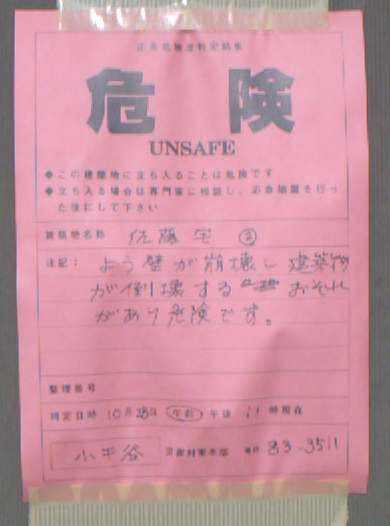 応急危険度判定結果
危険
UNSAFE
◆この建築物に立ち入ることは危険です
◆立ち入る場合は専門家に相談し、応急措置を行っ
た後にして下さい
建築物名称 佐藤宅 ②
注記： よう壁が崩壊し 建築物
が倒壊する おそれ
があり危険です。
整理番号
判定日時 10月28日 午前 午後 11時現在
小千谷 災害対策本部 電話 83-3511